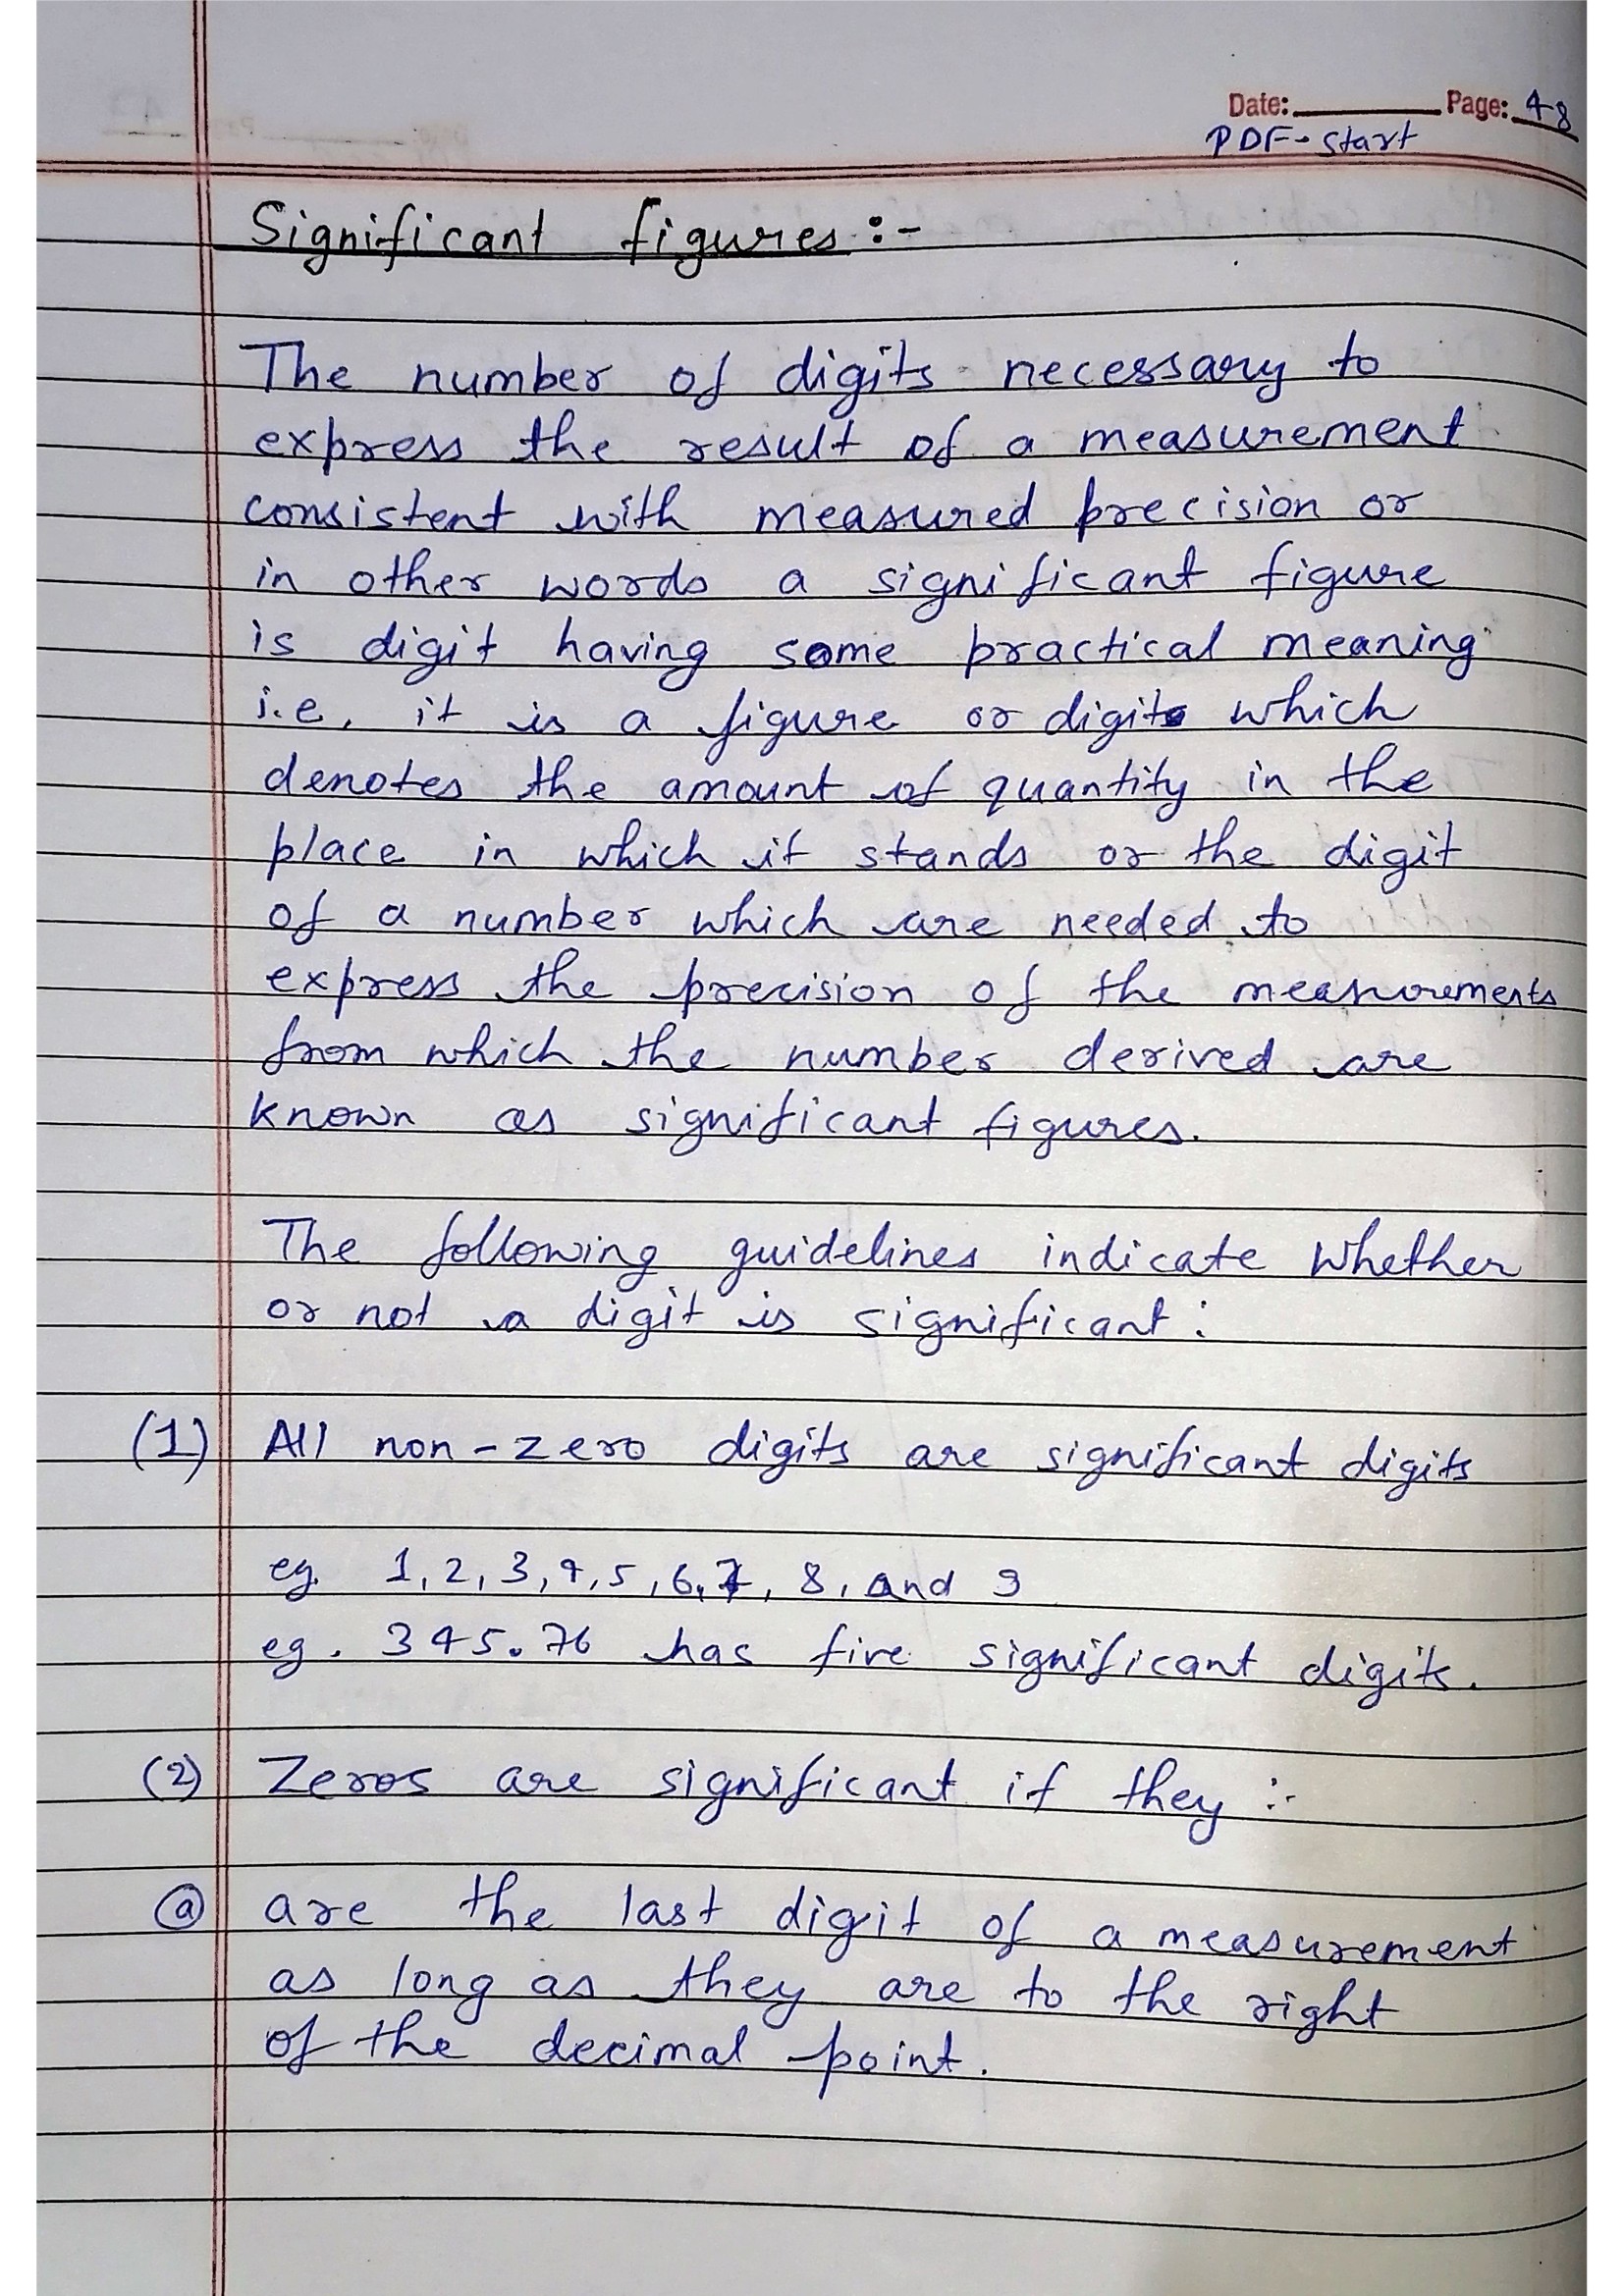 Date: Page: 48
PDF-start
Significant figures :-
The number of digits necessary to
express the result of a measurement
consistent with measured precision or
in other words a significant figure
is digit having some practical meaning
i.e, it is a figure or digits which
denotes the amount of quantity in the
place in which it stands or the digit
of a number which are needed to
express the precision of the measurements
from which the number derived are
known as significant figures.
The following guidelines indicate whether
or not a digit is significant :
(1) All non-zero digits are significant digits
eg. 1, 2, 3, 4, 5, 6, 7, 8, and 9
eg. 345.76 has five significant digits.
(2) Zeros are significant if they :-
(a) are the last digit of a measurement
as long as they are to the right
of the decimal point.